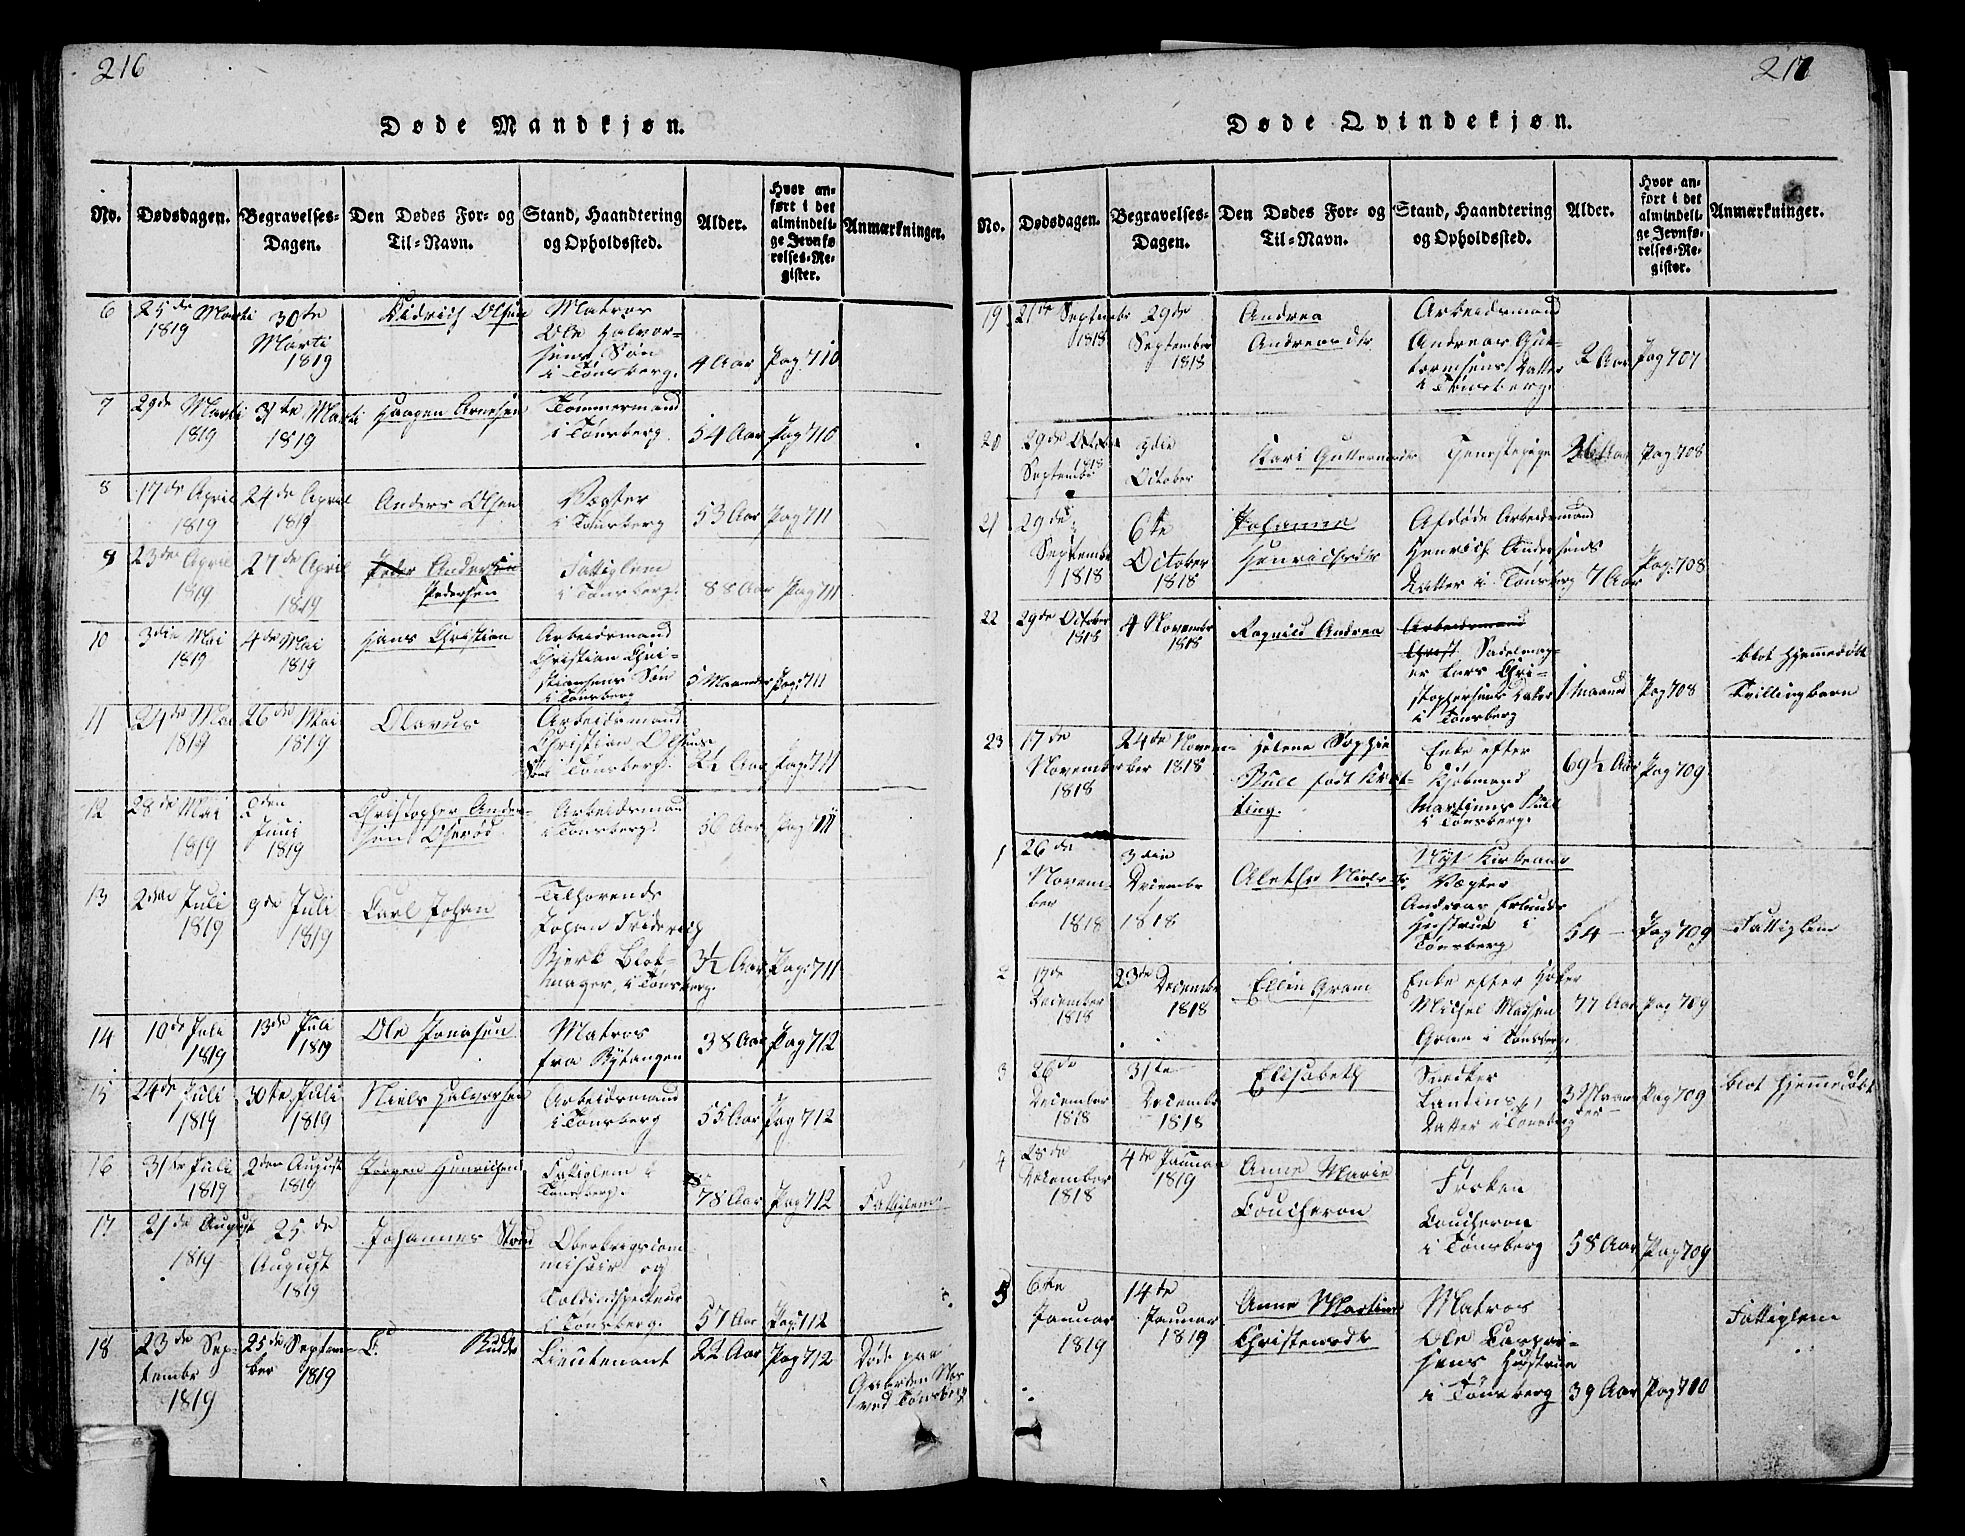 216
Døde Mandkjøn.
No. Dødsdagen. Begravelses-Dagen. Den Dødes For- og Til-Navn. Stand, Haandtering og Opholdssted. Alder. Hvor anført i det almindelige Jevnførelses-Register. Anmærkninger.
6 25de Marti 1819 30te Marti 1819 Didrich Olsen Matros Ole Halvorsens Søn i Tønsberg. 4 Aar Pag: 710
7 29de Marti 1819 31te Marti 1819 Haagen Arnesen Tømmermand i Tønsberg. 54 Aar Pag: 710
8 17de April 1819 24de April 1819 Anders Olsen Vægter i Tønsberg 53 Aar Pag: 711
9 23de April 1819 27de April 1819 Peder Andersen Pedersen Fattiglem i Tønsberg. 88 Aar Pag 711
10 3die Mai 1819 4de Mai 1819 Hans Christian Arbeidsmand Christian Christiansens Søn i Tønsberg 5 Maaneder Pag: 711
11 24de Mai 1819 26de Mai 1819 Olavus Arbeidsmand Christian Olsens Søn i Tønsberg. 2½ Aar Pag: 711
12 28de Mai 1819 2den Juni 1819 Christopher Andersen Oserød Arbeidsmand i Tønsberg. 56 Aar Pag: 711
13 2den Juli 1819 9de Juli 1819 Carl Johan Tilhørende Johan Friderich Bjerk Blokmager, i Tønsberg. 3½ Aar Pag: 711
14 10de Juli 1819 13de Juli 1819 Ole Jonasen Matros fra Nøtangen 38 Aar Pag 712
15 24de Juli 1819 30te Juli 1819 Niels Halvorsen Arbeidsmand i Tønsberg 55 Aar Pag 712
16 31te Juli 1819 2den August 1819 Jørgen Henrichsen Fattiglem i Tønsberg. 78 Aar Pag 712 Fattiglem
17 21de August 1819 25de August 1819 Johannes Oberkrigscommisair og Toldinspecteur i Tønsberg. 57 Aar Pag: 712
18 23de September 1819 25de September 1819 C. Budde Lieutenant 22 Aar Pag 712 Døde paa ved Tønsberg
217
Døde Qvindekjøn.
No. Dødsdagen. Begravelses-Dagen. Den Dødes For- og Til-Navn. Stand, Haandtering og Opholdssted. Alder. Hvor anført i det almindelige Jevnførelses-Register. Anmærkninger.
19 21de Septembr 1818 29de September 1818 Andrea Andreasdtr Arbeidsmand Andreas Guttormsens Datter i Tønsberg. 2 Aar Pag 707
20 29de Octobr 1818 Septembr 9die October Kari Guttormsdtr Tjenestepige 26 Aar Pag 708
21 29de Septembr 1818 6te October 1818 Johanne Henrichsdtr Afdøde Arbeidsmand Henrich Andersens Datter i Tønsberg 7 Aar Pag: 708
22 29de October 1818 4 Novembr 1818 Ragnild Andrea Arbeidsmand Christ Sadelmager Lars Christophersens Datter i Tønsberg 1 Maaned Pag 708 blot hjemmedøbt Tvillingbarn
23 17de November 1818 24de November 1818 Helene Sophie Bull født Kretting. Enke efter Kjøbmand Martinus Bull i Tønsberg. 69½ Aar Pag 709
1 26de November 1818 3die Decembr 1818 Alethe Nielsdtr. Nyt Kirkeaar Vægter Andreas Erlands Hustrue i Tønsberg 54 Pag 709 Fattiglem
2 17de December 1818 23de Decembr 1818 Ellin Gram Enke efter Høker Michel Madsen Gram i Tønsberg. 77 Aar Pag 709
3 26de December 1818 31te Decembr 1818 Elisabeth Snedker Lantins Datter i Tønsberg 3 Maaneder Pag 709 blot hjemmedøbt
4 28de December 1818 4de Januar 1819 Anne Marie Coucheron Frøken Coucheron i Tønsberg 58 Aar Pag 709
5 6te Januar 1819 14de Januar 1819 Anne Martine Christensdtr Matros Ole Caspersens Hustrue i Tønsberg 39 Aar Pag 710 Fattiglem